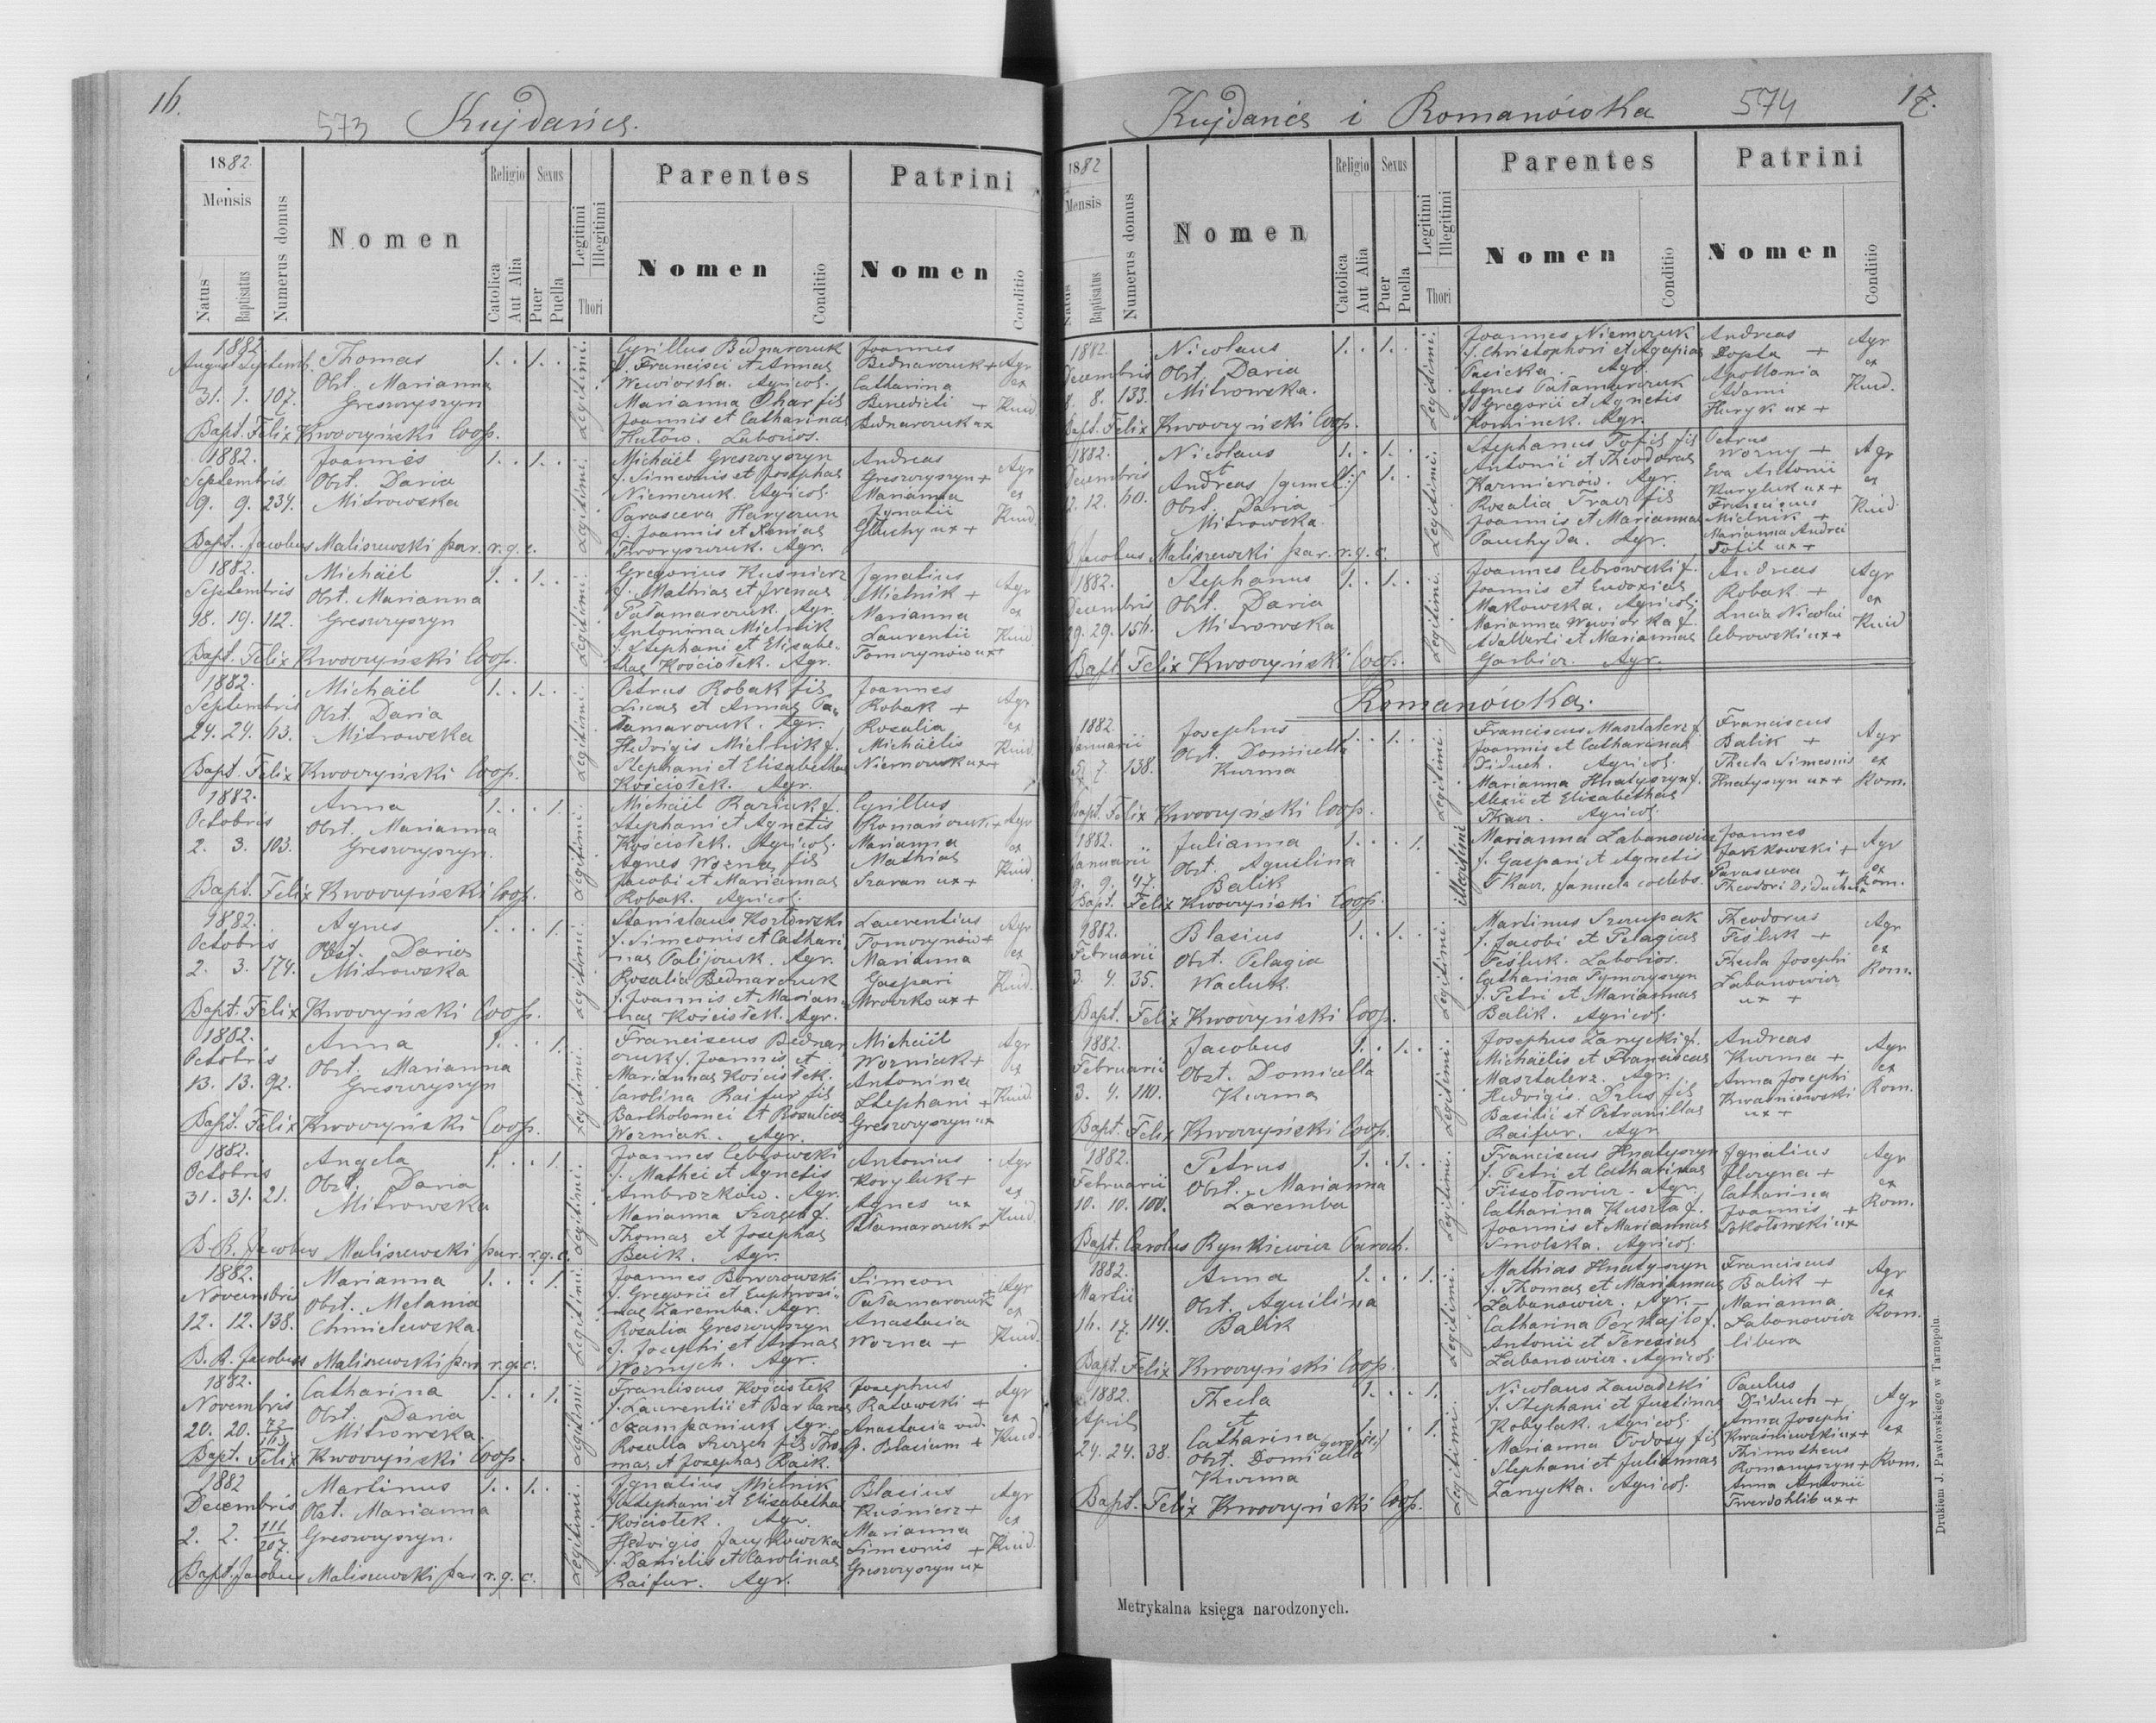 16.
573 Kujdańcs.
1882
Mensis
Natus
Baptisatus
Numerus domus
Nomen
Religio
Catolica
Aut Alia
Sexus
Puer
Puella
Legitimi
Illegitimi
Thori
Parentes
Nomen
Conditio
Patrini
Nomen
Conditio
1882
August Septemb.
31. 1. 107.
Thomas
Obst. Marianna
Greszczyszyn
1. . 1. .
Legitimi.
Cyrillus Bednarczuk
f. Francisci et Annae
Wewiorska. Agricol.
Marianna Char fil
Joannis et Catharinae
Hutow. Laborios.
Joannes
Bednarczuk +
Catharina
Benedicti +
Bednarczuk ux
Agr
ex
Kuid.
Bapt. Felix Kwoczyński Coop.
1882.
Septembris
9. 9. 234.
Joannes
Obst. Daria
Mitrowska
1. . 1. .
Legitimi.
Michäel Greszczyszyn
f. Simeonis et Josephae
Niemczuk. Agricol.
Parasceva Haryczun
f. Joannis et Xeniae
Andreas
Greszczyszyn +
Marianna
Ignatii
Gluchy ux +
Agr
ex
Kuid
Bapt. Jacobus Maliszewski par. r. g. c.
1882.
Septembris
18. 19. 112.
Michäel
Obst. Marianna
Greszczyszyn
1. . 1. .
Legitimi.
Gregorius Kuśnierz
f. Mathiae et Irenae
Patamarczuk. Agr.
Antonina Mielnik
f. Stephani et Elisabe-
thae Kościotek. Agr.
Ignatius
Mielnik +
Marianna
Laurentii
Tomczynów ux +
Agr
ex
Kuid
Bapt. Felix Kwoczyński Coop.
1882.
Septembris
24. 24. 63.
Michäel
Obst. Daria
Mitrowska
1. . 1. .
Legitimi.
Petrus Robak fil
Lucae et Annae Pa-
tamarczuk. Agr.
Hedvigis Mielnik f.
Stephani et Elisabethae
Kościotek. Agr.
Joannes
Robak +
Rosalia
Michäelis
Niemczuk ux +
Agr
ex
Kuid
Bapt. Felix Kwoczyński Coop.
1882.
Octobris
2. 3. 103.
Anna
Obst. Marianna
Greszczyszyn.
1. . . 1.
Legitimi.
Michäel Raziuk f.
Stephani et Agnetis
Kościotek. Agricol.
Agnes Wozna fil
Jacobi et Mariannae
Robak. Agricol.
Cyrillus
Romańczuk +
Marianna
Mathiae
Szaran ux +
Agr
ex
Kuid.
Bapt. Felix Kwoczyński Coop.
1882.
Octobris
2. 3. 174.
Agnes
Obst. Daria
Mitrowska
1. . . 1.
Legitimi.
Stanislaus Kozłowski
f. Simeonis et Cathari-
nae Palijczuk. Agr.
Rosalia Bednarczuk
f. Joannis et Marian-
nae Kościotek. Agr.
Laurentius
Tomczynów +
Marianna
Gaspari
Mroczko ux +
Agr
ex
Kuid
Bapt. Felix Kwoczyński Coop.
1882.
Octobris
13. 13. 92.
Anna
Obst. Marianna
Greszczyszyn
1. . . 1.
Legitimi.
Franciscus Bednar-
czuk f. Joannis et
Mariannae Kościotek.
Carolina Raifur fil
Bartholomei et Rosaliae
Wozniak. Agr.
Michäel
Wozniak +
Antonina
Stephani +
Greszczyszyn ux
Agr
ex
Kuid
Bapt. Felix Kwoczyński Coop.
1882.
Octobris
31. 31. 21.
Angela
Obst. Daria
Mitrowska
1. . . 1.
Legitimi.
Joannes Cebrowski
f. Mathei et Agnetis
Ambrozków. Agr.
Marianna Szczech f.
Thomae et Josephae
Baik. Agr.
Antonius
Koryluk +
Agnes ux
Patamarczuk +
Agr
ex
Kuid
B. R. Jacobus Maliszewski par. r. g. c.
1882.
Novembris
12. 12. 138.
Marianna
Obst. Melania
Chmielewska.
1. . . 1.
Legitimi.
Joannes Bowczowski
f. Gregorii et Euphrosi-
nae Zaremba. Agr.
Rosalia Greszczyszyn
f. Josephi et Annae
Woznych. Agr.
Simeon
Patamarczuk +
Anastasia
Worna +
Agr
ex
Kuid.
B. R. Jacobus Maliszewski par. r. g. c.
1882.
Novembris
20. 20. 72/163
Catharina
Obst. Daria
Mitrowska.
1. . . 1.
Legitimi.
Franciscus Kościotek
f. Laurentii et Barbarae
Szampaniuk Agr.
Rosalia Szczech fil Tho-
mae et Josephae Baik.
Josephus
Ratowski +
Anastasia vid.
p. Blasium +
Agr
ex
Kuid.
Bapt. Felix Kwoczyński Coop.
1882
Decembris
2. 2. 111/207.
Martinus
Obst. Marianna
Greszczyszyn.
1. . 1. .
Legitimi.
Ignatius Mielnik
f. Stephani et Elisabethae
Kościotek. Agr.
Hedvigis Jaczkowska
f. Danielis et Carolinae
Raifur. Agr.
Blasius
Kuśnierz +
Marianna
Simeonis +
Greszczyszyn ux
Agr
ex
Kuid.
Bapt. Jacobus Maliszewski par r. g. c.
Kujdańcs i Romanówka 574 17.
1882
Mensis
Natus
Baptisatus
Numerus domus
Nomen
Religio
Catolica
Aut Alia
Sexus
Puer
Puella
Legitimi
Illegitimi
Thori
Parentes
Nomen
Conditio
Patrini
Nomen
Conditio
1882.
Decembris
8. 8. 133.
Nicolaus
Obst. Daria
Mitrowska.
1. . 1. .
Legitimi.
Joannes Niemczuk
f. Christophori et Agapiae
Pasieka. Agr.
Agnes Patamarczuk
f. Gregorii et Agnetis
Kominek. Agr.
Andreas
Dopta +
Apollonia
Adami
Huryk ux +
Agr
ex
Kuid.
Bapt. Felix Kwoczyński Coop.
1882.
Decembris
12. 12. 60.
Nicolaus
et
Andreas /gemel:/
Obst. Daria
Mitrowska.
1. . 1. .
Legitimi.
Stephanus Tofil fil
Antonii et Theodorae
Kazmierzów. Agr.
Rosalia Tracz fil
Joannis et Mariannae
Panchyda. Agr.
Petrus
Worny +
Eva Antonii
Kuryluk ux +
Franciscus
Mielnik +
Marianna Andrei
Tofil ux +
Agr
ex
Kuid
B. Jacobus Maliszewski par. r. g. c.
1882.
Decembris
29. 29. 156.
Stephanus
Obst. Daria
Mitrowska
1. . 1. .
Legitimi.
Joannes Cebrowski f.
Joannis et Eudoxiae
Makowska. Agricol.
Marianna Wewiorka f.
Adalberti et Mariannae
Garbicz. Agr.
Andreas
Robak +
Lucia Nicolai
Cebrowski ux +
Agr
ex
Kuid
Bapt. Felix Kwoczyński Coop.
Romanówka.
1882.
Januarii
5. 7. 138.
Josephus
Obst. Domicella
Kurma
1. . 1. .
Legitimi.
Franciscus Masztalerz f.
Joannis et Catharinae
Diduch. Agricol.
Marianna Hnatyszyn f.
Alexii et Elisabethae
Tkacz. Agricol.
Franciscus
Balik +
Thecla Simeonis
Hnatyszyn ux +
Agr
ex
Rom.
Bapt. Felix Kwoczyński Coop.
1882.
Januarii
9. 9. 47.
Julianna
Obst. Aquilina
Balik
1. . . 1.
Illegitimi
Marianna Labanowicz
f. Gaspari et Agnetis
Tkacz, famula coelebs.
Joannes
Jakkowski +
Parasceva +
Theodori Diduch ux
Agr
ex
Rom.
Bapt. Felix Kwoczyński Coop.
1882.
Februarii
3. 4. 35.
Blasius
Obst. Pelagia
Wacluk.
1. . 1. .
Legitimi.
Martinus Szczupak
f. Jacobi et Pelagiae
Feśluk. Laborios.
Catharina Tymczyszyn
f. Petri et Mariannae
Balik. Agricol.
Theodorus
Feśluk +
Thecla Josephi
Labanowicz
ux +
Agr
ex
Rom.
Bapt. Felix Kwoczyński Coop.
1882.
Februarii
3. 4. 110.
Jacobus
Obst. Domicella
Kurma
1. . 1. .
Legitimi.
Josephus Zarycki f.
Michäelis et Franciscae
Masztalerz. Agr.
Hedvigis Drlus fil
Basilii et Petronillae
Raifur. Agr
Andreas
Kurma +
Anna Josephi
Kwaśniewski
ux +
Agr
ex
Rom.
Bapt. Felix Kwoczyński Coop.
1882.
Februarii
10. 10. 100.
Petrus
Obst. Marianna
Zaremba
1. . 1. .
Legitimi.
Franciscus Hnatyszyn
f. Petri et Catharinae
Fissotowicz. Agr.
Catharina Kuszta f.
Joannis et Mariannae
Smolska. Agricol.
Ignatius
Horyna +
Catharina
Joannis +
Sokolowski ux
Agr
ex
Rom.
Bapt. Carolus Rynkiewicz Paroch.
1882.
Martii
16. 17. 114.
Anna
Obst. Aquilina
Balik
1. . . 1.
Legitimi.
Mathias Hnatyszyn
f. Thomae et Mariannae
Labanowicz. Agr.
Catharina Perhajlo f.
Antonii et Teresiae
Labanowicz. Agricol.
Franciscus
Balik +
Marianna
Labanowicz
libera
Agr
ex
Rom.
Bapt. Felix Kwoczyński Coop.
1882.
April
24. 24. 38.
Thecla
et
Catharina /gemel:/
Obst. Domicella
Kurma
1. . . 1.
Legitimi.
Nicolaus Zawadzki
f. Stephani et Justinae
Kobylak. Agricol.
Marianna Todosy fil
Stephani et Juliannae
Zarycka. Agricol.
Paulus
Diduch +
Anna Josephi
Kwaśniewski ux +
Thimotheus
Romanyszyn +
Anna Antonii
Twerdohlib ux +
Agr
ex
Rom.
Bapt. Felix Kwoczyński Coop.
Metrykalna księga narodzonych.
Drukiem J. Pawłowskiego w Tarnopolu.